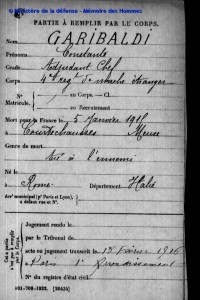 © Ministère de la défense - Mémoire des Hommes
PARTIE À REMPLIR PAR LE CORPS.
GARIBALDI
Nom
Prénoms Constante
Grade Adjudant Chef
Corps 4e régt de marche étranger
N° au Corps. — Cl.
Matricule. au Recrutement
Mort pour la France le 5 Janvier 1915
à Courtechausses Meuse
Genre de mort
tué à l'ennemi
Né le
à Rome Département Italie
Arr' municipal (pr Paris et Lyon),
à défaut rue et N°.
Jugement rendu le
par le Tribunal de
acte ou jugement transcrit le 15 Février 1916
à Paris 1er Arrondissement
N° du registre d'état civil
101-708-1922. [26434]